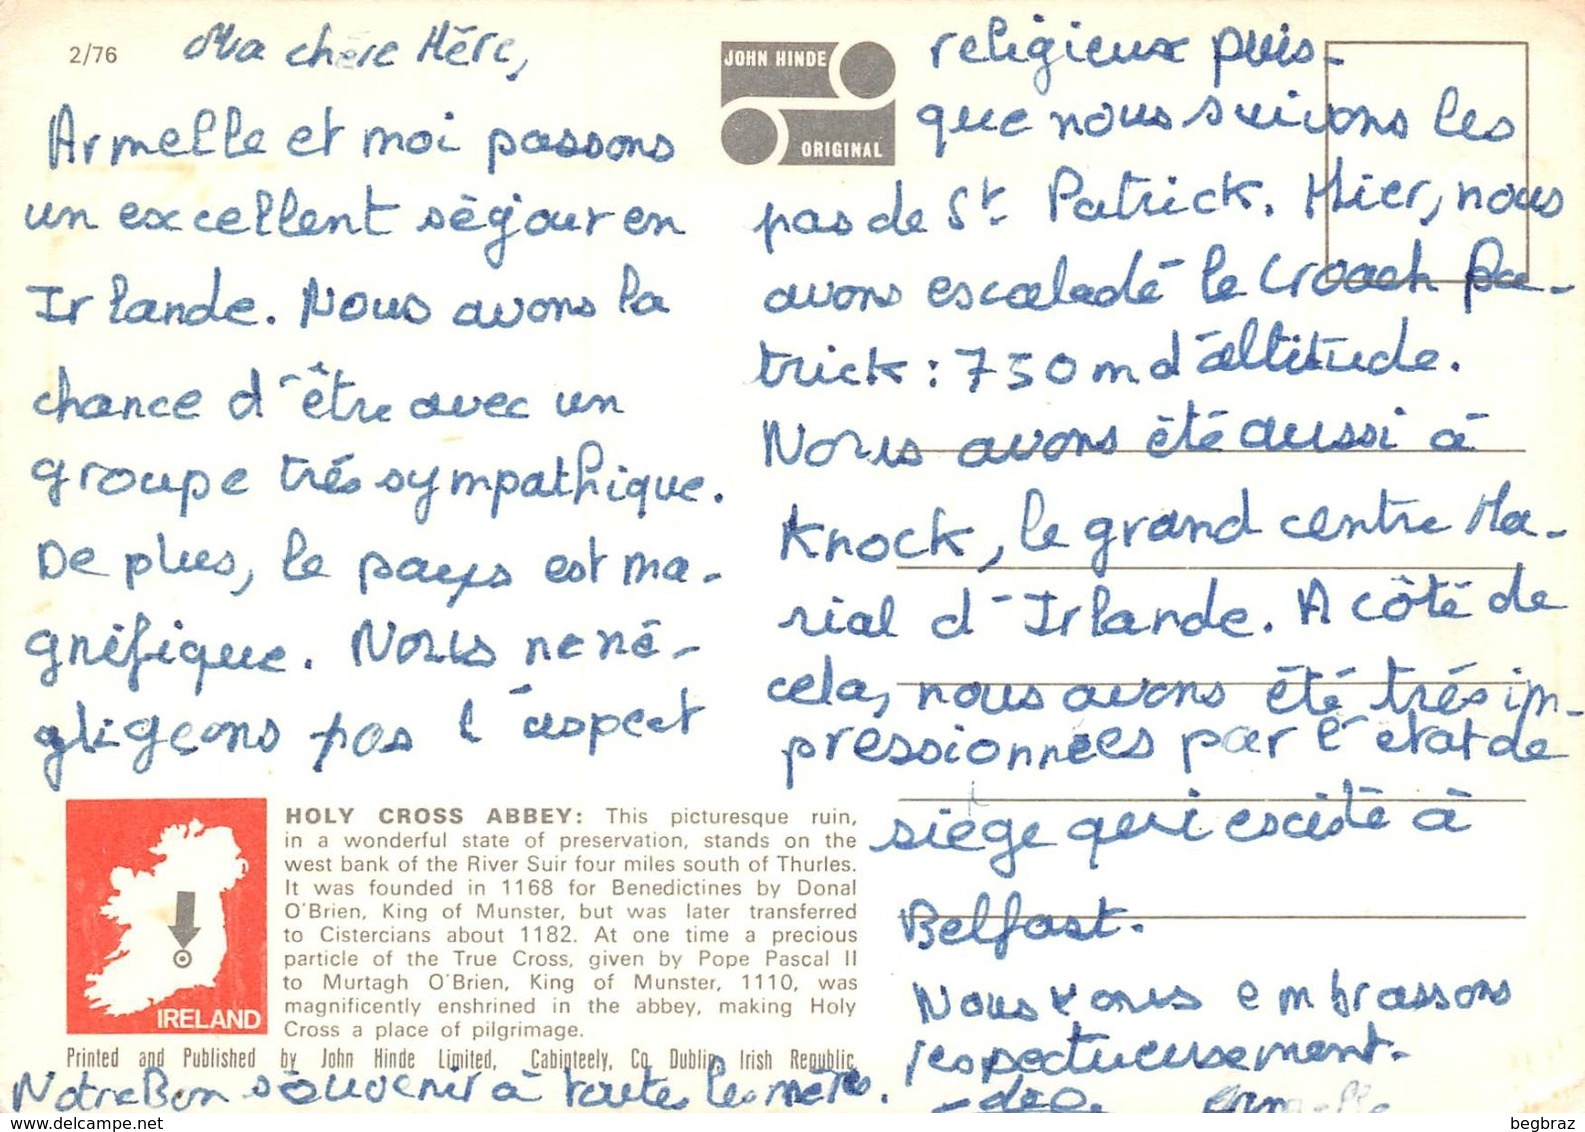 2/76
Ma chère Mère,
Armelle et moi passons
un excellent séjour en
Irlande. Nous avons la
chance d'être avec un
groupe trés sympathique.
De plus, le pays est ma-
gnifique. Nous ne né-
gligeons pas l'aspect
JOHN HINDE
ORIGINAL
religieux puis-
que nous suivons les
pas de St. Patrick. Hier, nous
avons escaladé le Croagh Pa-
trick : 750 m d'altitude.
Nous avons été aussi à
Knock, le grand centre Ma-
rial d'Irlande. A côté de
cela, nous avons été trés im-
pressionnées par l'état de
siège qui existe à
Belfast.
Nous vous embrassons
respectueusement.
HOLY CROSS ABBEY: This picturesque ruin,
in a wonderful state of preservation, stands on the
west bank of the River Suir four miles south of Thurles.
It was founded in 1168 for Benedictines by Donal
O'Brien, King of Munster, but was later transferred
to Cistercians about 1182. At one time a precious
particle of the True Cross, given by Pope Pascal II
to Murtagh O'Brien, King of Munster, 1110, was
magnificently enshrined in the abbey, making Holy
Cross a place of pilgrimage.
IRELAND
Printed and Published by John Hinde Limited, Cabinteely, Co. Dublin, Irish Republic.
Notre Bon souvenir à toutes les mères.
delcampe.net
begbraz